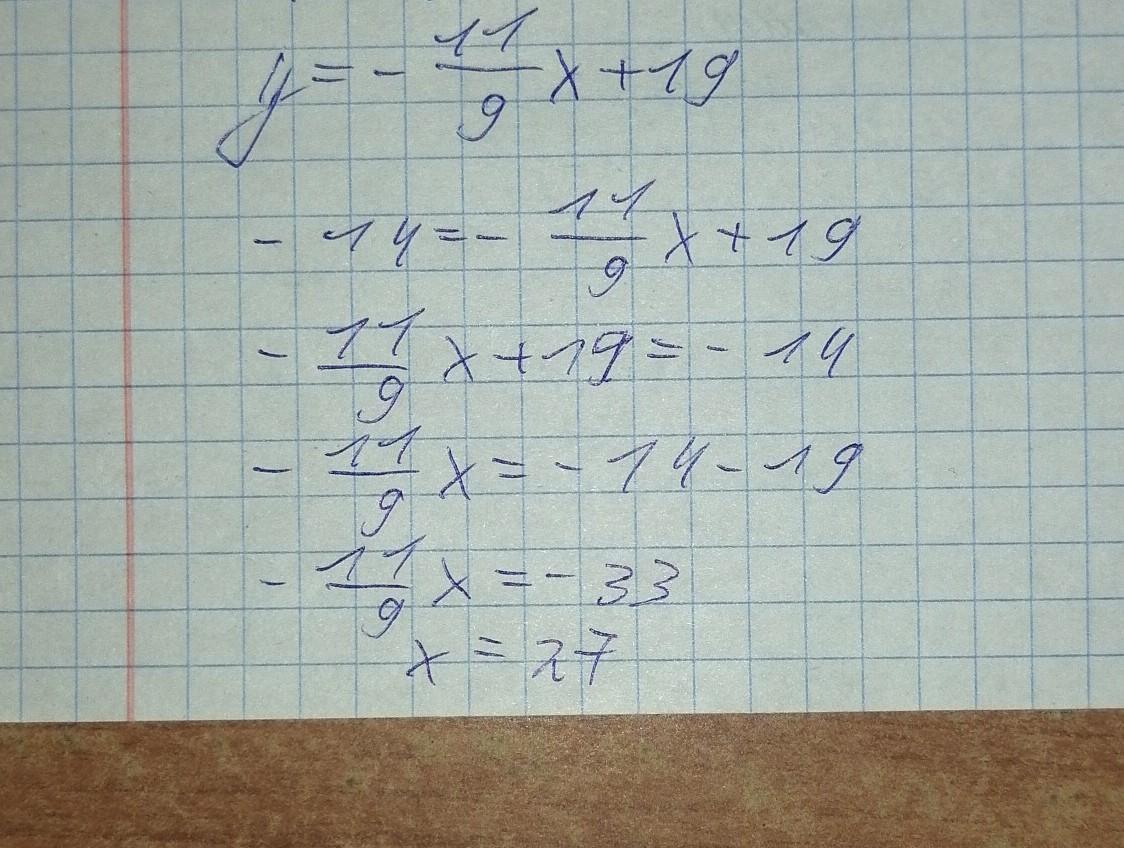 y = - 11/9 x + 19
- 14 = - 11/9 x + 19
- 11/9 x + 19 = - 14
- 11/9 x = - 14 - 19
- 11/9 x = - 33
x = 27